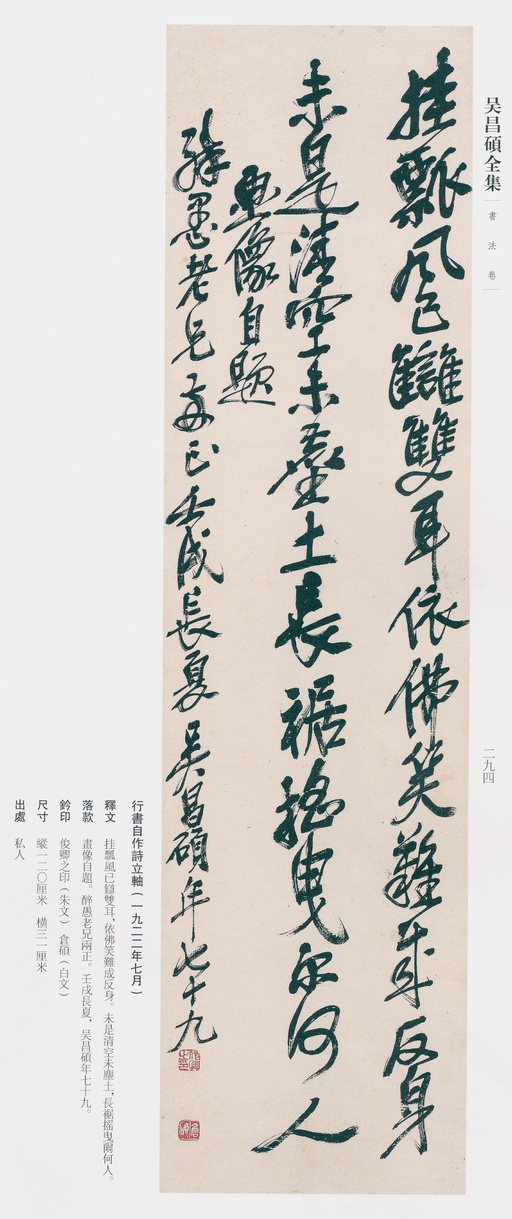 吴昌碩全集
書法卷
二九四
挂瓢風已讎雙耳依佛笑難成反身
未是清空未塵土長裾搖曳尔何人
畫像自題
醉愚老兄兩正壬戌長夏吴昌碩年七十九
行書自作詩立軸（一九二二年七月）
釋文　挂瓢風已讎雙耳，依佛笑難成反身。未是清空未塵土，長裾搖曳爾何人。
落款　畫像自題。醉愚老兄兩正。壬戌長夏，吴昌碩年七十九。
鈐印　俊卿之印（朱文）　倉碩（白文）
尺寸　縱一二〇厘米　横三一厘米
出處　私人